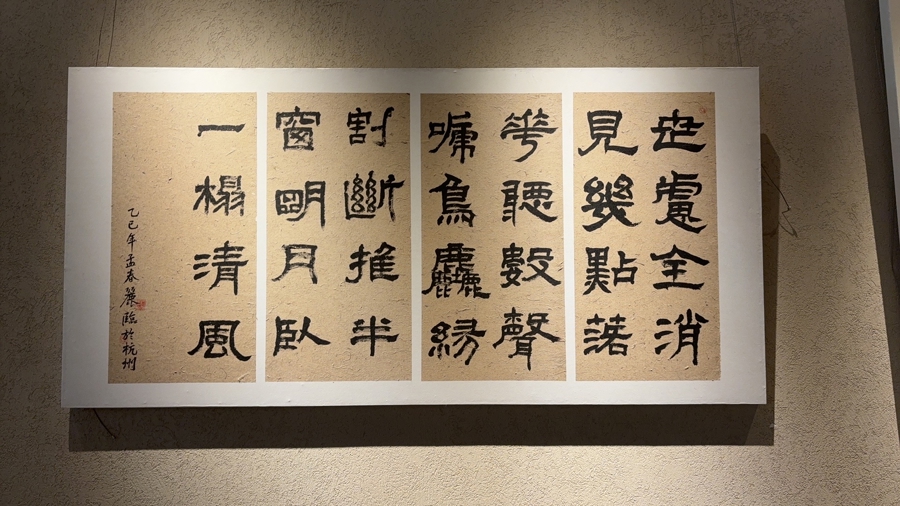 世慮全消
見幾點落
華聽數聲
啼鳥麤緣
割斷推半
窗明月臥
一榻清風
乙巳年孟春麗臨於杭州